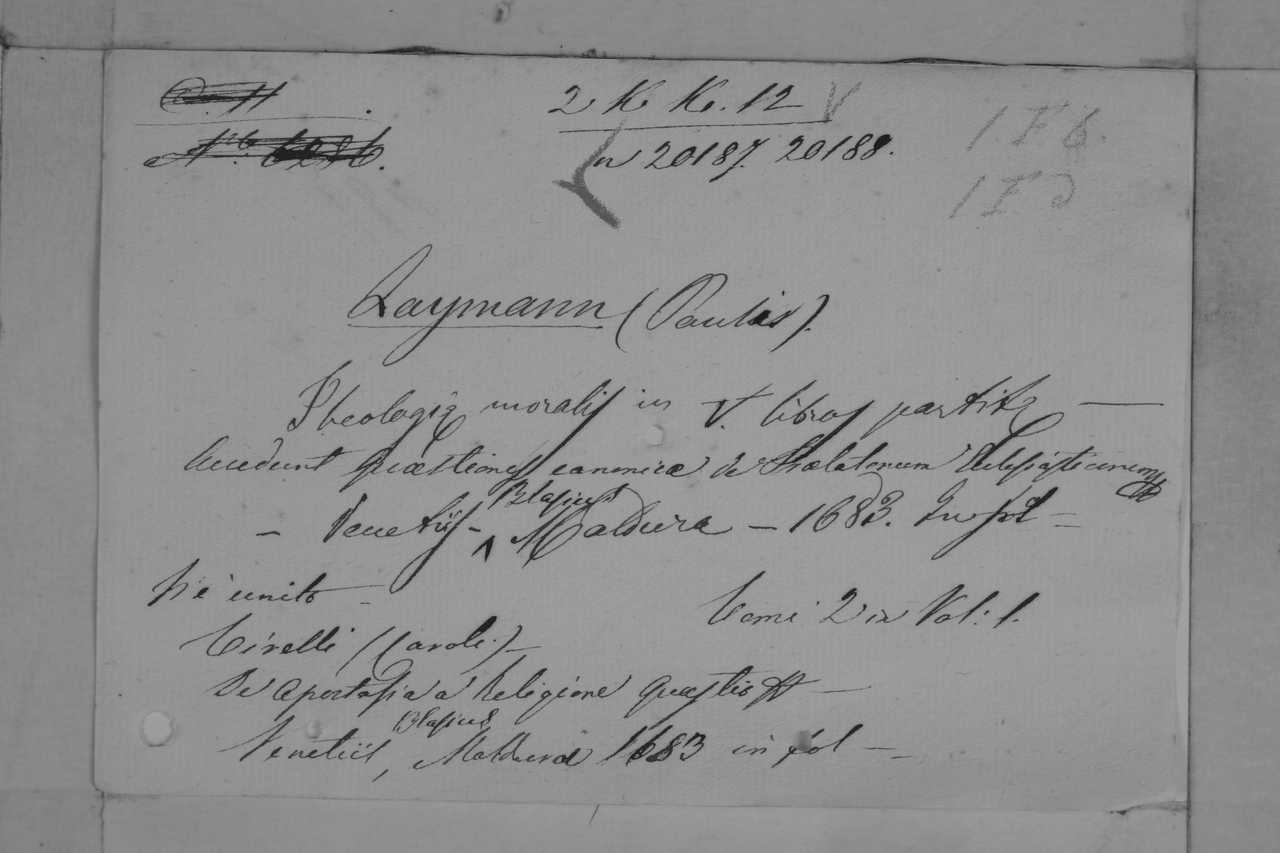 2 K K. 12
n 20187. 20188.
1 F 6.
1 F
Laymann (Paulus).
Theologiæ moralis in V. libros partitæ —
Accedunt quæstiones canonicæ de Prælatorum Ecclesiasticorum
Blasius
— Venetiis — ^ Maldura — 1683. In fol —
Vi è unito —
Tomi 2 in Vol: 1.
Cirelli (Caroli) —
De Apostasia a Religione quæstio —
Blasius
Venetiis, Maldura 1683 in fol —